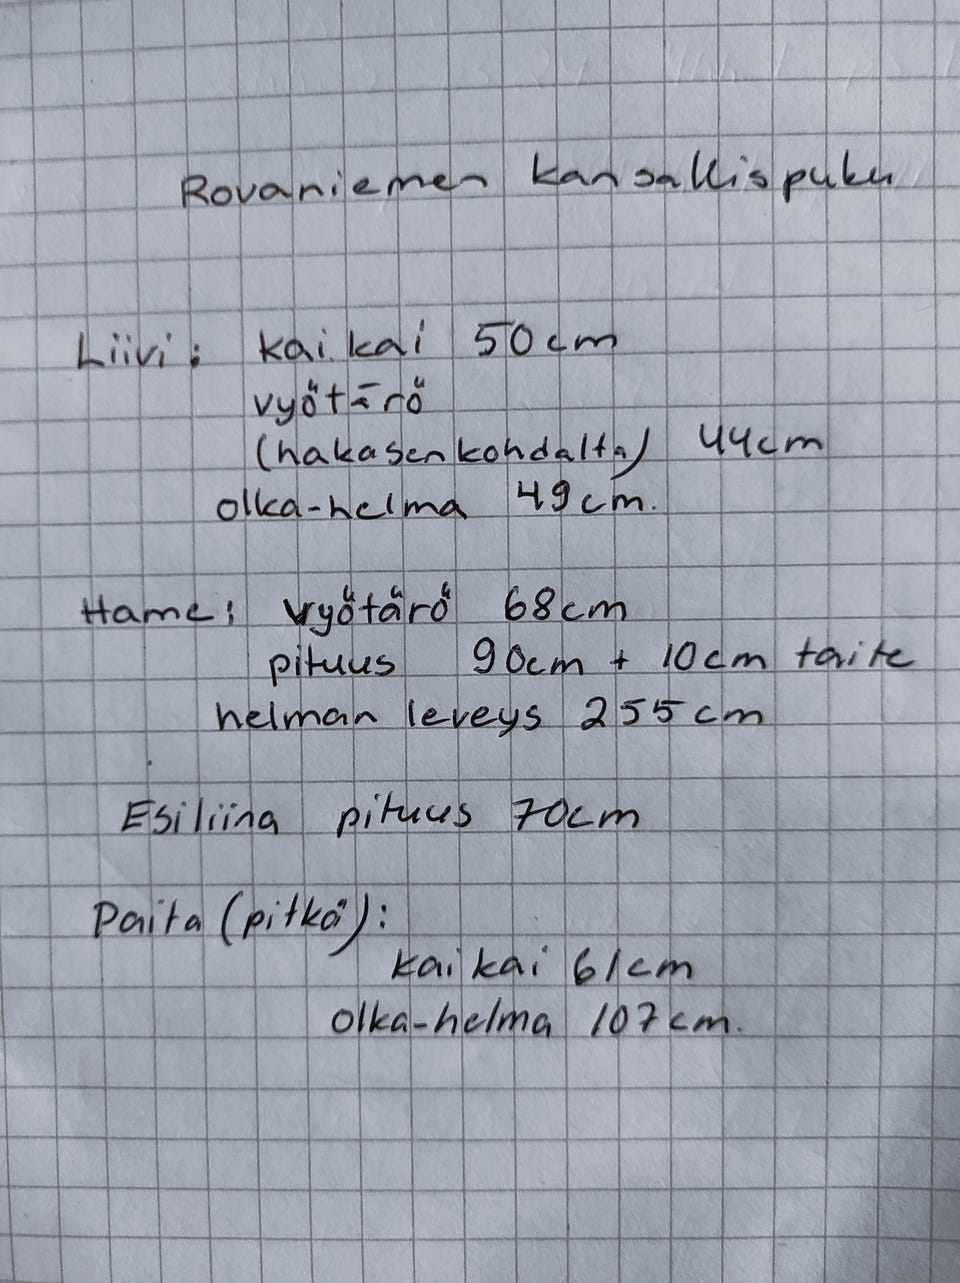 Rovaniemen kansallispuku
Liivi: kai.kai 50cm
vyötärö
(hakasen kohdalta) 44cm
olka-helma 49cm.
Hame: vyötärö 68cm
pituus 90cm + 10cm taite
helman leveys 255cm
Esiliina pituus 70cm
Paita (pitkä):
kai kai 61cm
olka-helma 107cm.